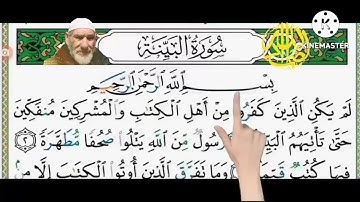 سُورَةُ الْبَيِّنَةِ
KINEMASTER
بِسْمِ اللَّهِ الرَّحْمَٰنِ الرَّحِيمِ
لَمْ يَكُنِ الَّذِينَ كَفَرُوا مِنْ أَهْلِ الْكِتَابِ وَالْمُشْرِكِينَ مُنفَكِّينَ
حَتَّىٰ تَأْتِيَهُمُ الْبَيِّنَةُ رَسُولٌ مِّنَ اللَّهِ يَتْلُوا صُحُفًا مُّطَهَّرَةً ٢
فِيهَا كُتُبٌ قَيِّمَةٌ وَمَا تَفَرَّقَ الَّذِينَ أُوتُوا الْكِتَابَ إِلَّا مِن